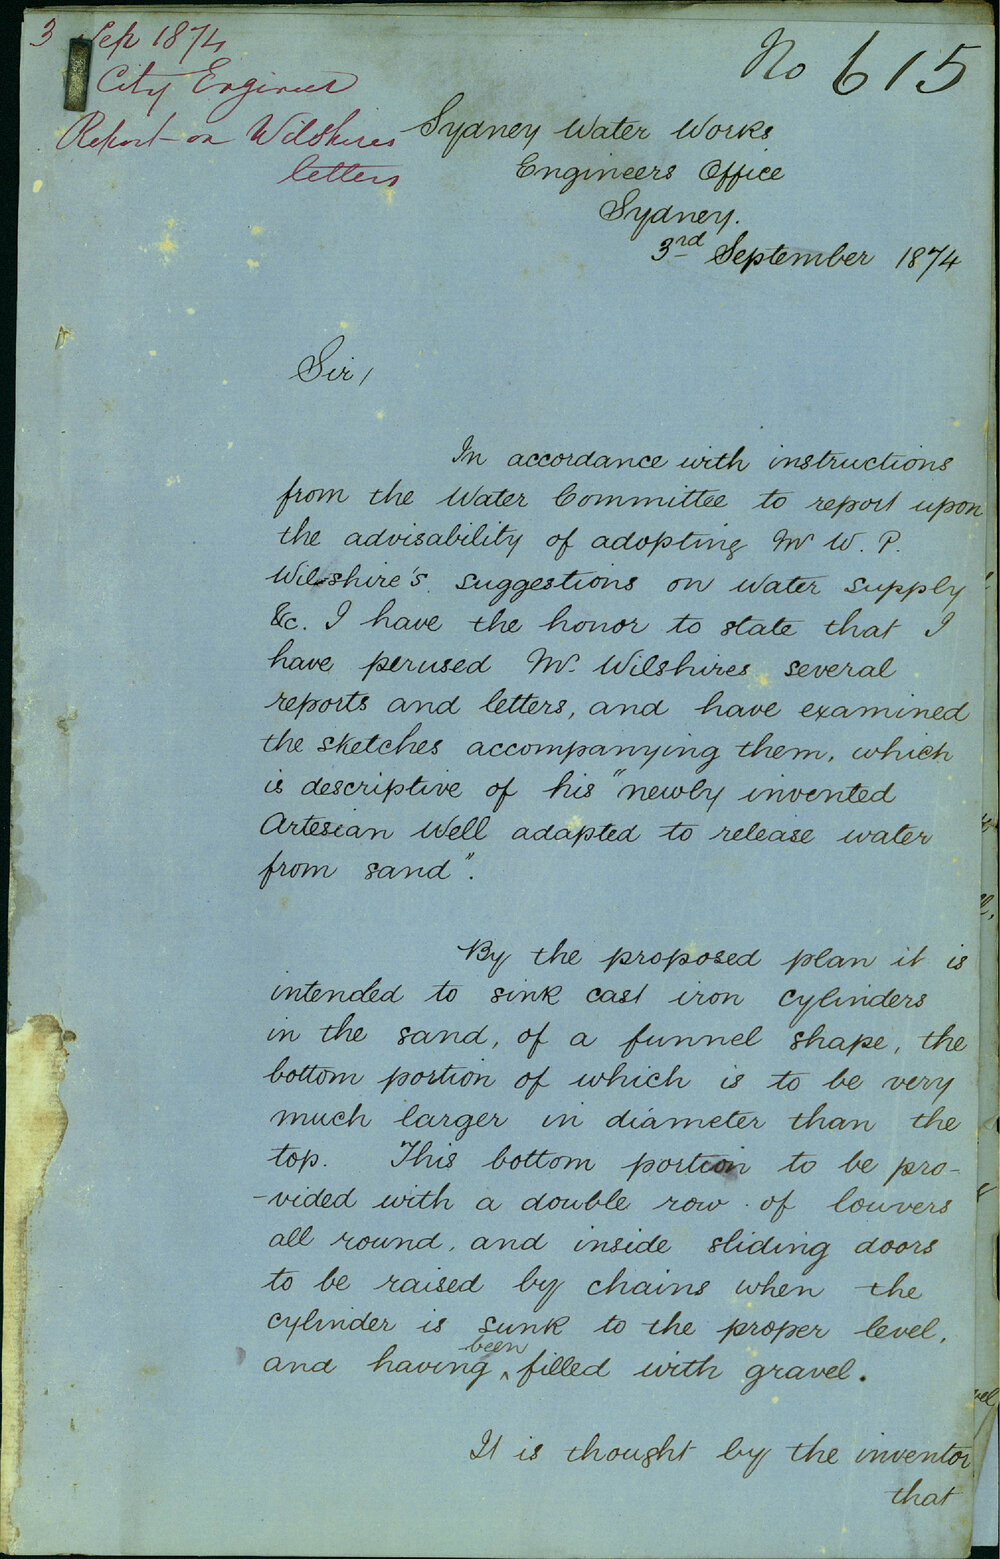 3 Sep 1874
City Engineer
Report on Wilshires
letters
No 615
Sydney Water Works
Engineers Office
Sydney.
3rd September 1874
Sir,
In accordance with instructions
from the Water Committee to report upon
the advisability of adopting Mr W. P.
Wilshire's suggestions on Water Supply
&c. I have the honor to state that I
have perused Mr. Wilshires several
reports and letters, and have examined
the sketches accompanying them, which
is descriptive of his "newly invented
Artesian Well adapted to release water
from sand".
By the proposed plan it is
intended to sink cast iron cylinders
in the sand, of a funnel shape, the
bottom portion of which is to be very
much larger in diameter than the
top. This bottom portion to be pro-
-vided with a double row of louvers
all round, and inside sliding doors
to be raised by chains when the
cylinder is sunk to the proper level,
and having been filled with gravel.
It is thought by the inventor
that